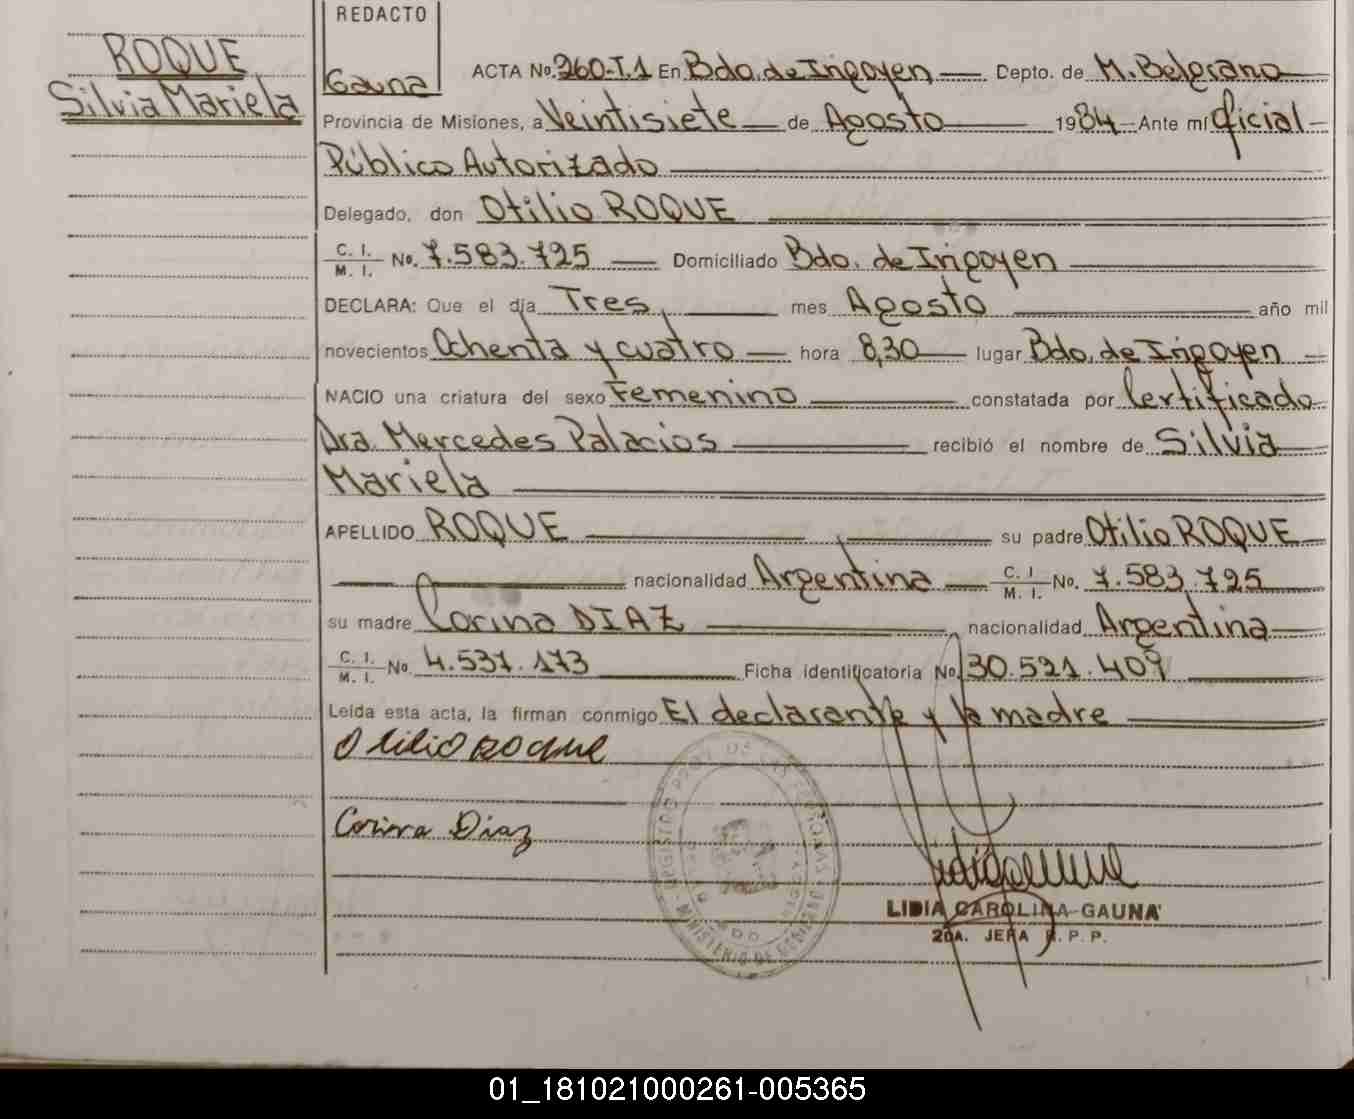 ROQUE
Silvia Mariela
REDACTO
Gauna
ACTA No. 260-T.1 En Bdo. de Irigoyen Depto. de M. Belgrano
Provincia de Misiones, a Veintisiete de Agosto 1984 Ante mí Oficial
Público Autorizado
Delegado, don Otilio ROQUE
C. I. M. I. No. 7.583.725 Domiciliado Bdo. de Irigoyen
DECLARA: Que el día Tres mes Agosto año mil
novecientos Ochenta y cuatro hora 8,30 lugar Bdo. de Irigoyen
NACIO una criatura del sexo Femenino constatada por Certificado
Dra. Mercedes Palacios recibió el nombre de Silvia
Mariela
APELLIDO ROQUE su padre Otilio ROQUE
nacionalidad Argentina C. I M. I. No. 7.583.725
su madre Corina DIAZ nacionalidad Argentina
C. I. M. I. No 4.537.173 Ficha identificatoria No. 30.521.409
Leída esta acta, la firman conmigo El declarante y la madre
Otilio ROQUE
Corina Diaz
REGISTRO PROV. DE LAS PERSONAS
MINISTERIO DE GOBIERNO
LIDIA CAROLINA GAUNA
2DA. JEFA R. P. P.
01_181021000261-005365